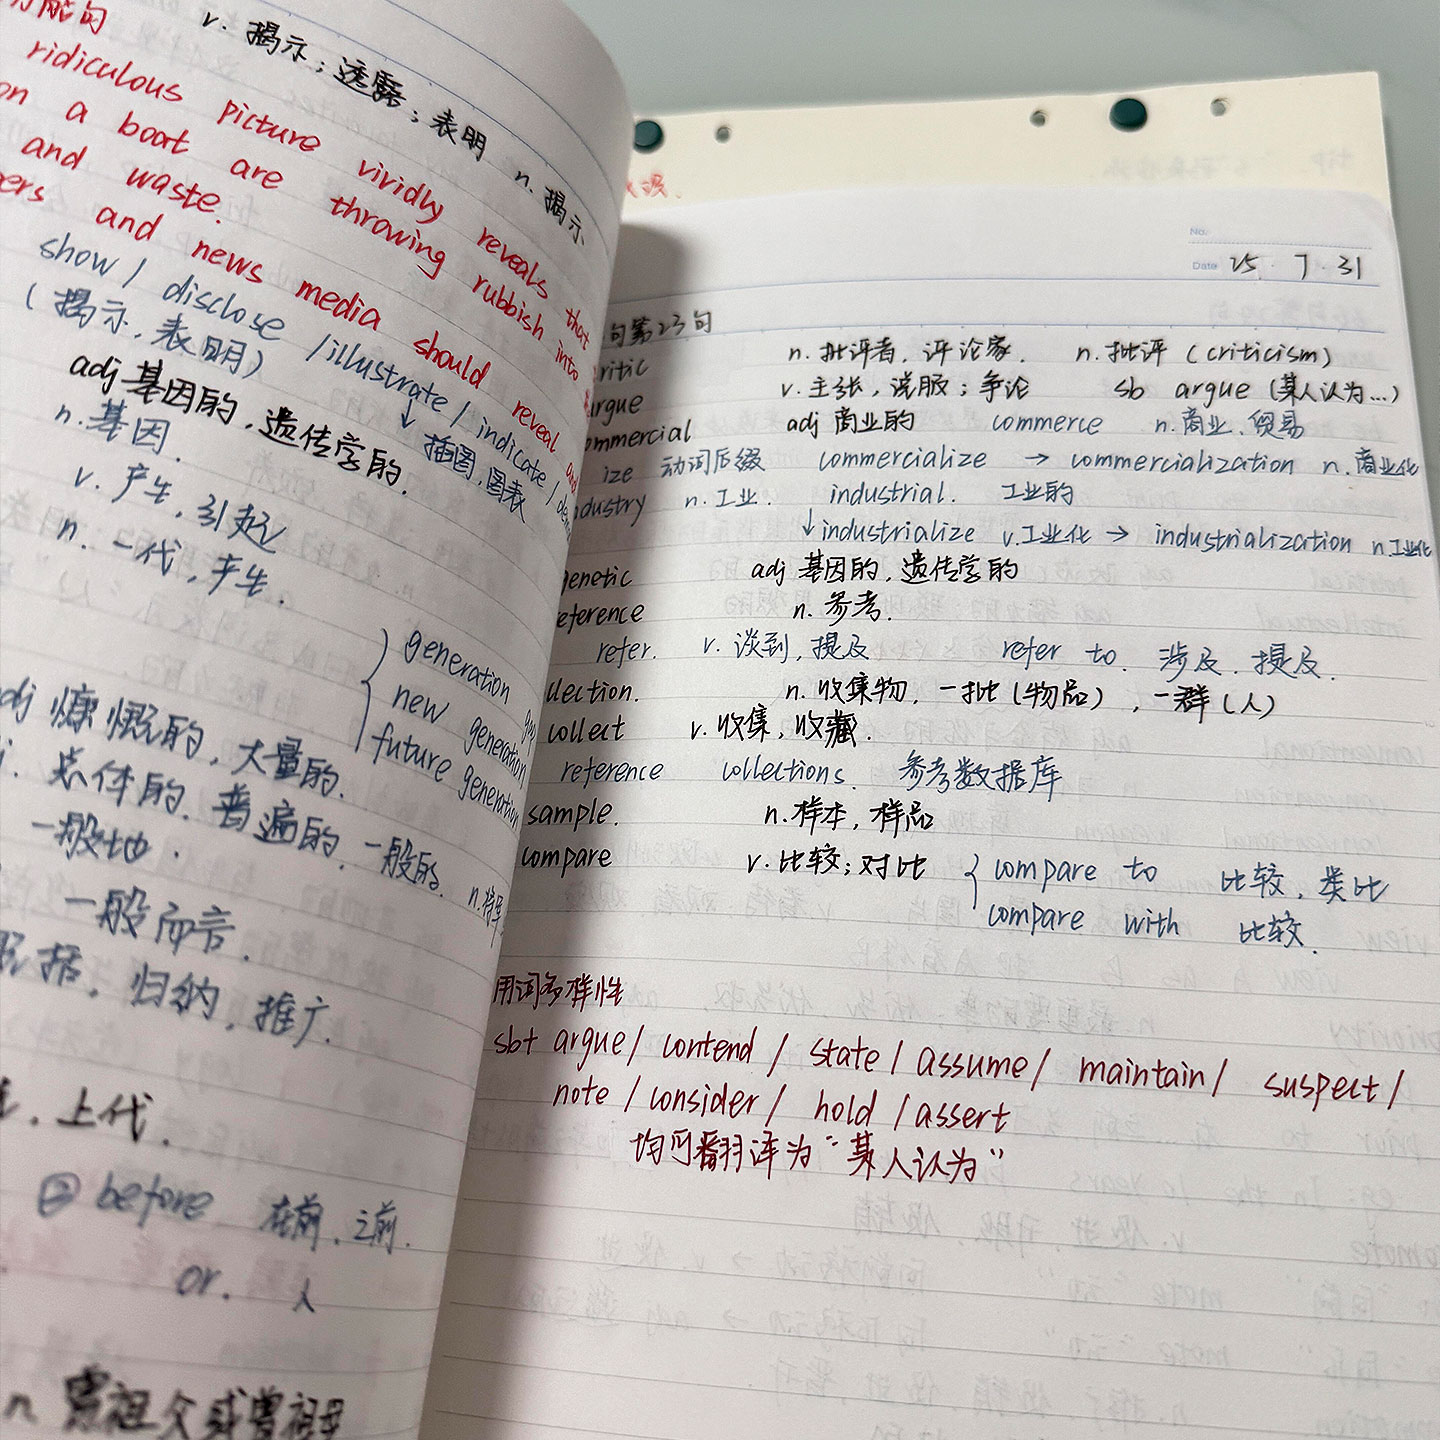 v. 揭示；透露；表明 n. 揭示
ridiculous picture vividly reveals that
on a boat are throwing rubbish into
and waste.
and news media should reveal and
show / disclose / illustrate / indicate /
(揭示，表明) ↓ 插图，图表
adj 基因的，遗传学的．
n. 基因．
v. 产生，引起
n. 一代，产生．
generation
new generation
future generation
慷慨的，大量的．
总体的．普遍的．一般的．
一般地．
一般而言．
归纳，推广．
上代．
② before 在前．之前．
or. 人
n
No.
Date 25 . 7 . 31
句第23句
critic n. 批评者．评论家． n. 批评 (criticism)
argue v. 主张，说服；争论 sb argue (某人认为...)
commercial adj 商业的 commerce n. 商业．贸易
ize 动词后缀 commercialize → commercialization n. 商业化
industry n. 工业． industrial. 工业的
↓ industrialize v. 工业化 → industrialization n. 工业化
genetic adj 基因的，遗传学的
reference n. 参考．
refer. v. 谈到，提及 refer to. 涉及．提及．
llection. n. 收集物，一批(物品)，一群(人)
collect v. 收集，收藏．
reference collections. 参考数据库
sample. n. 样本，样品
compare v. 比较；对比 { compare to 比较．类比
compare with 比较．
用词多样性
sb+ argue / contend / state / assume / maintain / suspect /
note / consider / hold / assert
均可翻译为“某人认为”